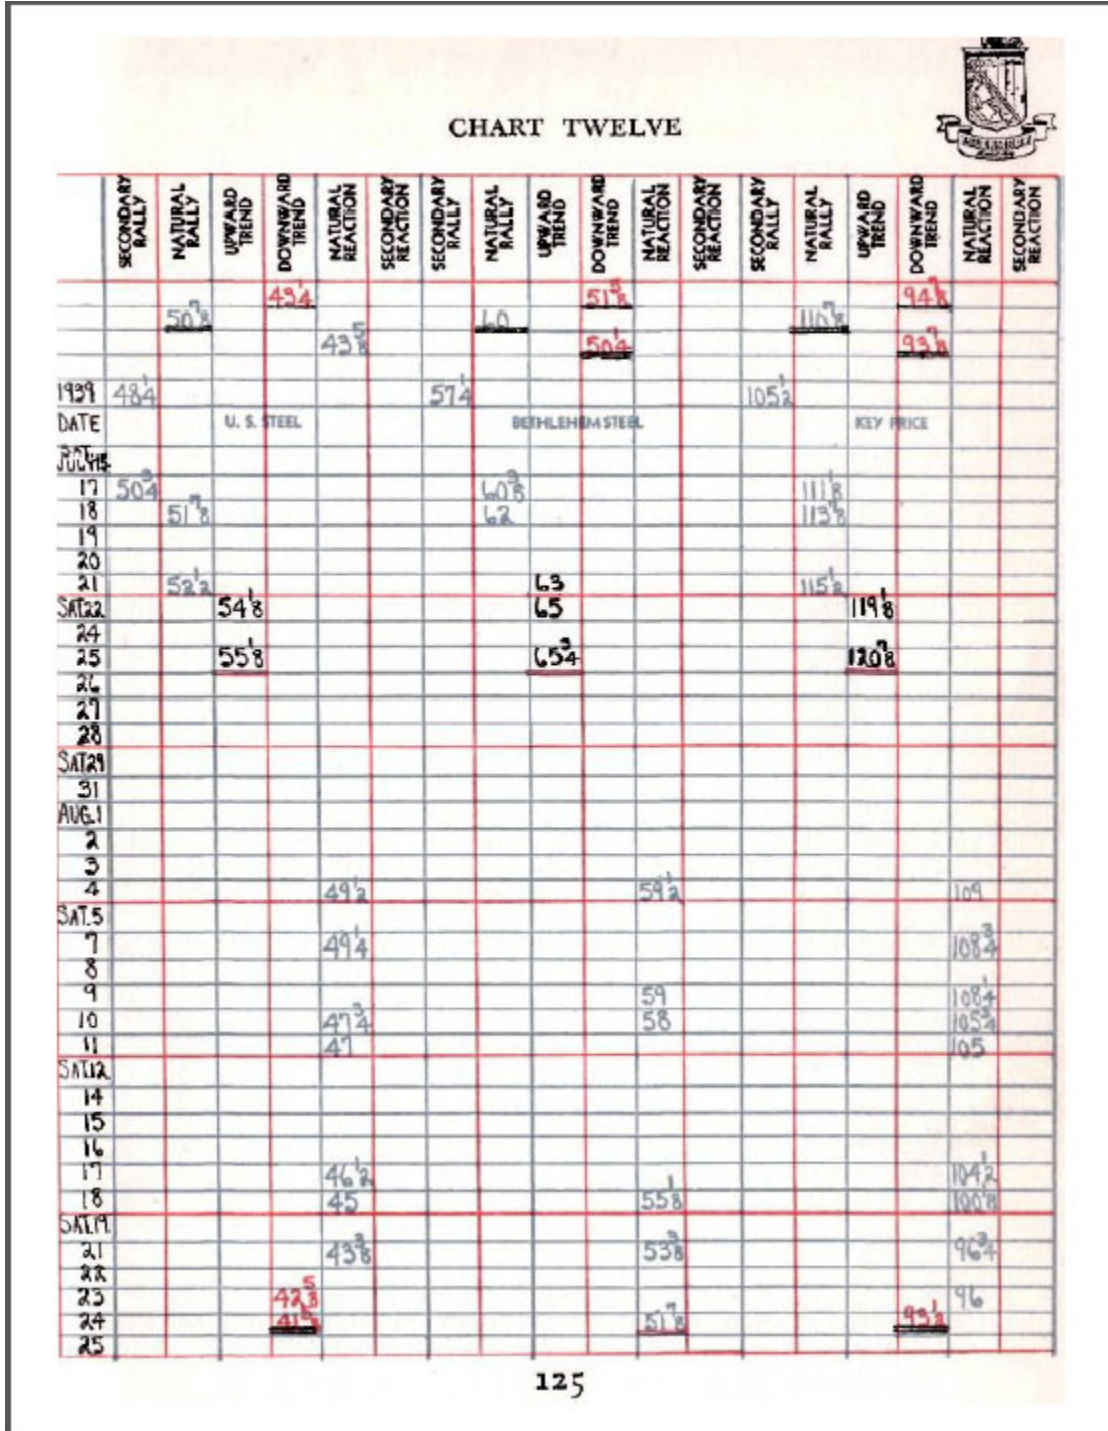 CHART TWELVE
SECONDARY RALLY NATURAL RALLY UPWARD TREND DOWNWARD TREND NATURAL REACTION SECONDARY REACTION SECONDARY RALLY NATURAL RALLY UPWARD TREND DOWNWARD TREND NATURAL REACTION SECONDARY REACTION SECONDARY RALLY NATURAL RALLY UPWARD TREND DOWNWARD TREND NATURAL REACTION SECONDARY REACTION
43 1/4 51 5/8 94 7/8
50 7/8 60 110 7/8
43 5/8 50 1/4 93 7/8
1939 48 1/4 57 1/4 105 1/2
DATE U. S. STEEL BETHLEHEM STEEL KEY PRICE
SAT. JULY 15
17 50 3/4 60 3/8 111 1/8
18 51 7/8 62 113 7/8
19
20
21 52 1/2 63 115 1/2
SAT.22 54 1/8 65 119 1/8
24
25 55 1/8 65 3/4 120 7/8
26
27
28
SAT.29
31
AUG.1
2
3
4 49 1/2 59 1/2 109
SAT.5
7 49 1/4 108 3/4
8
9 59 108 1/4
10 47 3/4 58 105 3/4
11 47 105
SAT.12
14
15
16
17 46 1/2 104 1/2
18 45 55 1/8 100 1/8
SAT.19
21 43 3/8 53 3/8 96 3/4
22
23 42 5/8 96
24 41 5/8 51 7/8 93 1/2
25
125